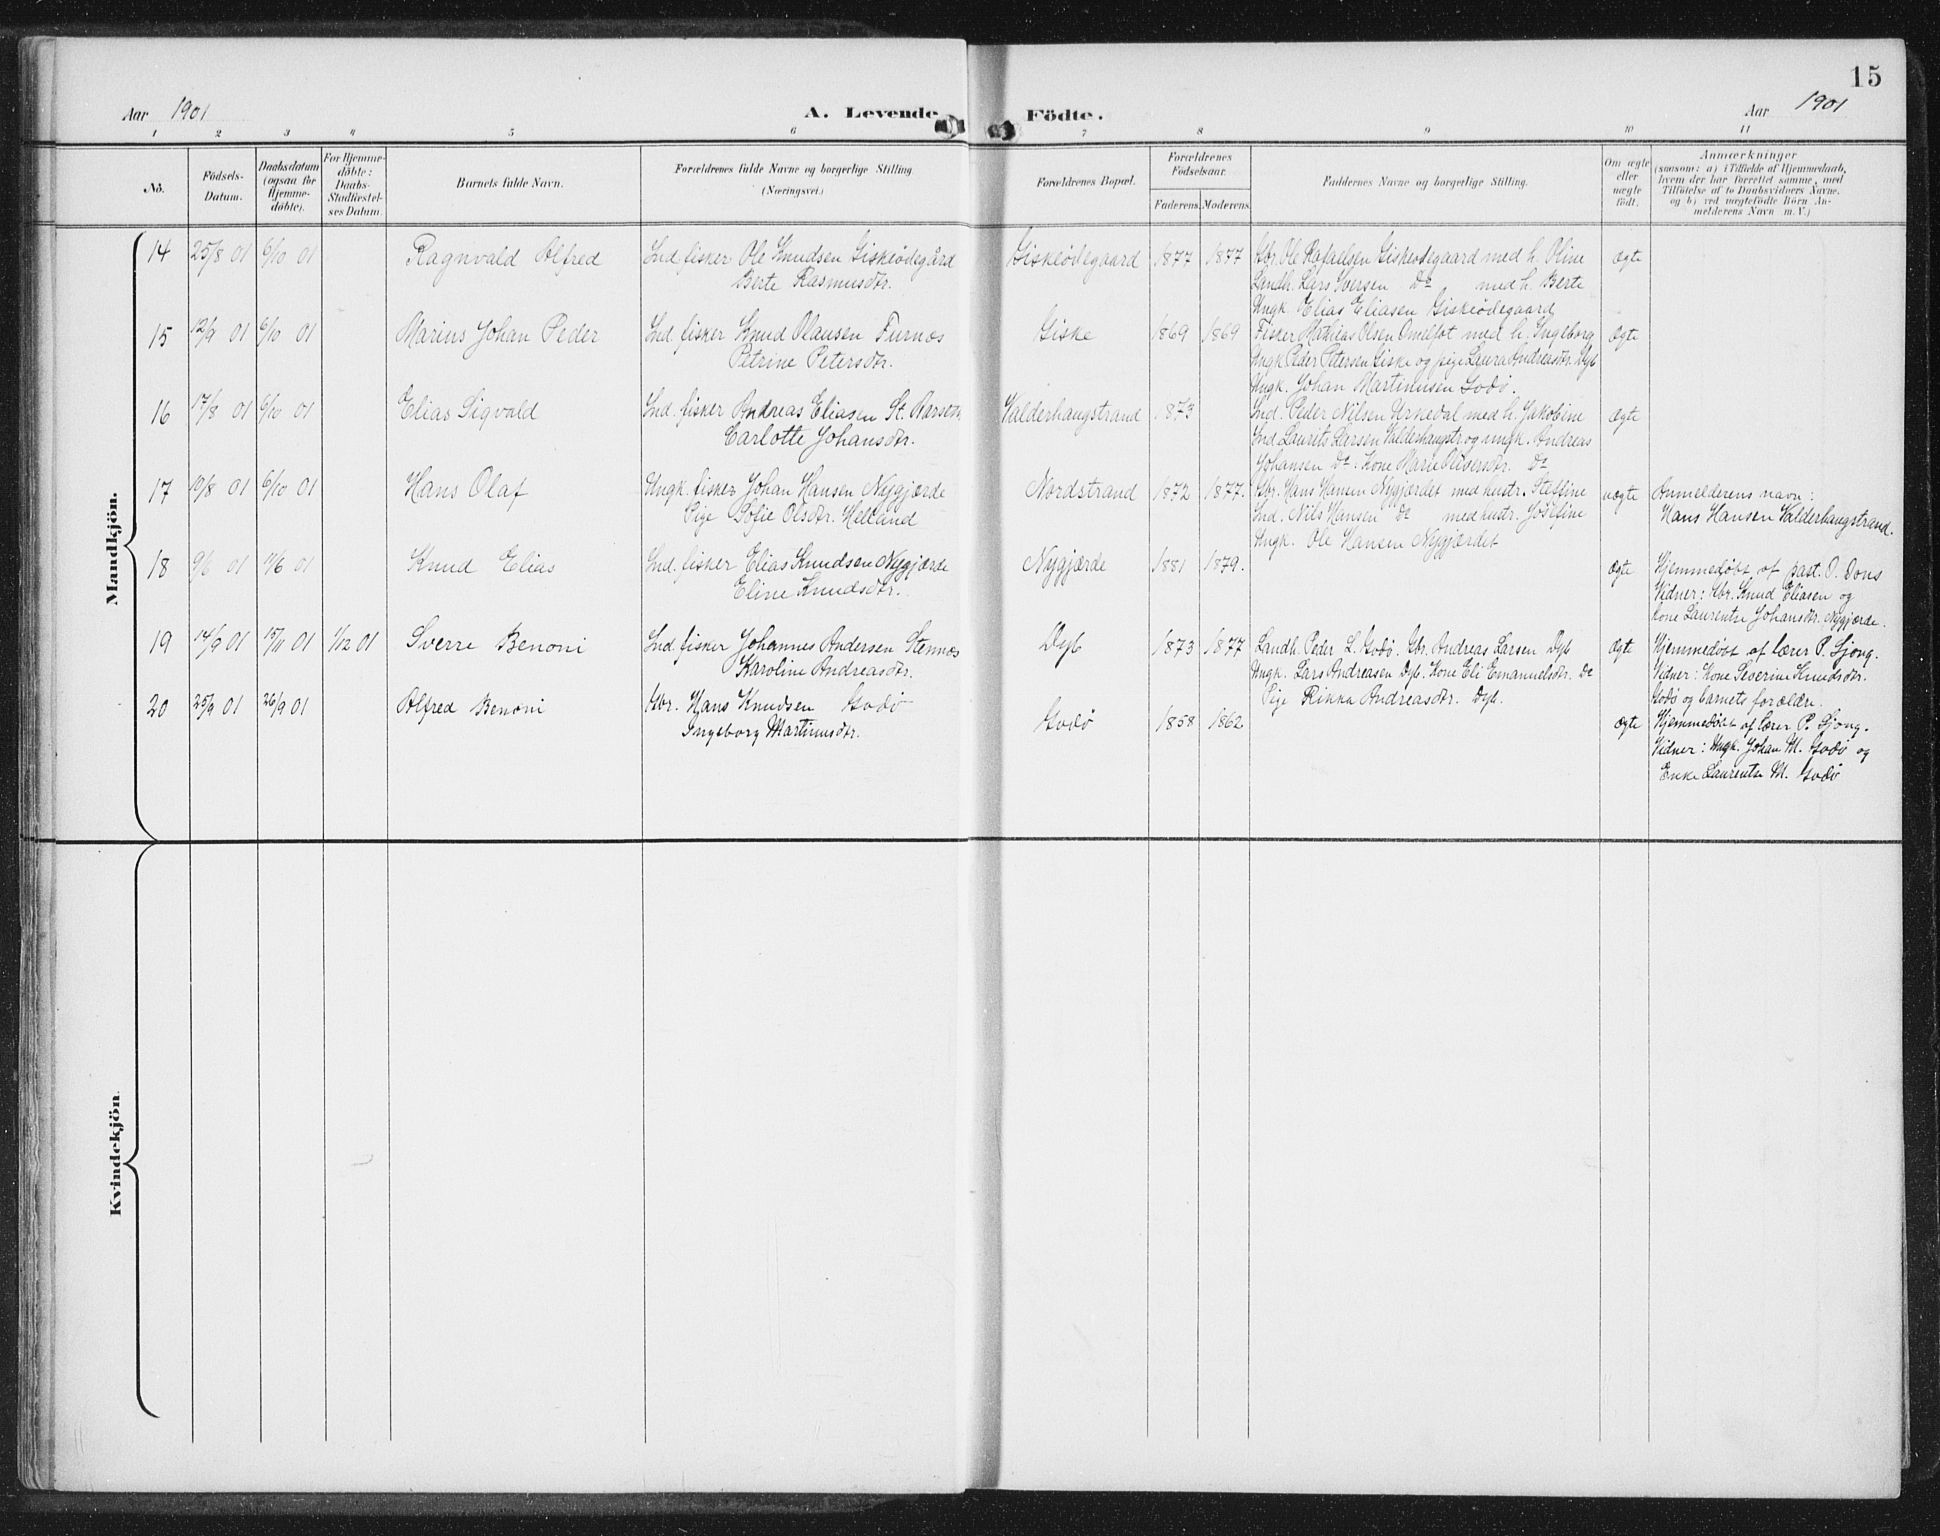 15
Aar 1901
A. Levende Födte.
Aar 1901
1 2 3 4 5 6 7 8 9 10 11
No.
Födsels-
Datum.
Daabsdatum
(ogsaa for
Hjemme-
döbte).
For Hjemme-
döbte:
Daabs-
Stadfæstel-
ses Datum.
Barnets fulde Navn.
Forældrenes fulde Navne og borgerlige Stilling
(Næringsvei.)
Forældrenes Bopæl.
Forældrenes
Födselsaar.
Faderens. Moderens.
Faddernes Navne og borgerlige Stilling.
Om ægte
eller
uægte
født.
Anmærkninger
(saasom: a) i Tilfælde af Hjemmedaab,
hvem der har forrettet samme, med
Tilföielse af to Daabsvidners Navne.
og b) ved uægtefödte Börn An-
melderens Navn m. V.)
Mandkjön.
14 25/8 01 6/10 01 Ragnvald Olfred Ind. fisker Ole Knudsen Giskeødegård Giskeødegaard 1877 1877 Gbr. Ole Rafaelsen Giskeødegaard med h. Oline ægte
Berte Rasmusdtr. Landh. Lars Iversen Do med h. Berte
Ungk. Elias Eliasen Giskeødegaard
15 12/9 01 6/10 01 Marius Johan Peder Ind. fisker Knud Olausen Furnes Giske 1869 1869 Fisker Mathias Olsen Omelfot med h. Ingeborg ægte
Petrine Petersdtr. Ungk. Peder Petersen Giske og pige Laura Andreasdtr. Dyb
Ungk. Johan Martinusen Godø.
16 17/8 01 6/10 01 Elias Sigvald Ind. fisker Andreas Eliasen St. Barseth Valderhaugstrand 1873 Ind. Peder Nilsen Urkedal med h. Jakobine ægte
Carlotte Johansdtr. Ind. Laurits Larsen Valderhaugstr. og ungk. Andreas
Johansen Do. Kone Marie Oliversdtr. Do
17 10/8 01 6/10 01 Hans Olaf Ungk. fisker Johan Hansen Nygjærde Nordstrand 1872 1877. Gbr. Hans Hansen Nygjærdet med hustr. Steffine uægte Anmelderens navn:
Pige Sofie Olsdtr. Helland Ind. Nils Hansen Do med hustr. Josefine Hans Hansen Valderhaugstrand.
Ungk. Ole Hansen Nygjærdet
18 9/6 01 11/6 01 Knud Elias Ind. fisker Elias Knudsen Nygjærde Nygjærde 1881 1879. ægte Hjemmedøbt af past. O. Dons
Eline Knudsdtr. Vidner: Gbr. Knud Eliasen og
kone Laurentse Johansdtr. Nygjærde.
19 14/9 01 15/11 01 1/12 01 Sverre Benoni Ind. fisker Johannes Andersen Stennes Dyb 1873 1877 Landh. Peder L. Godø. Gbr. Andreas Larsen Dyb ægte Hjemmedøbt af lærer P. Sjong.
Karoline Andreasdtr. Ungk. Lars Andreasen Dyb. Kone Eli Emanuelsdtr. Do Vidner: Kone Severine Knudsdtr.
Pige Rikka Andreasdtr. Dyb. Godø og barnets forældre.
20 25/9 01 26/9 01 Alfred Benoni Gbr. Hans Knudsen Godø Godø 1858 1862 ægte Hjemmedøbt af lærer P. Sjong.
Ingeborg Martinusdtr. Vidner: Ungk. Johan M. Godø og
Enke Laurentse M. Godø
Kvindekjön.